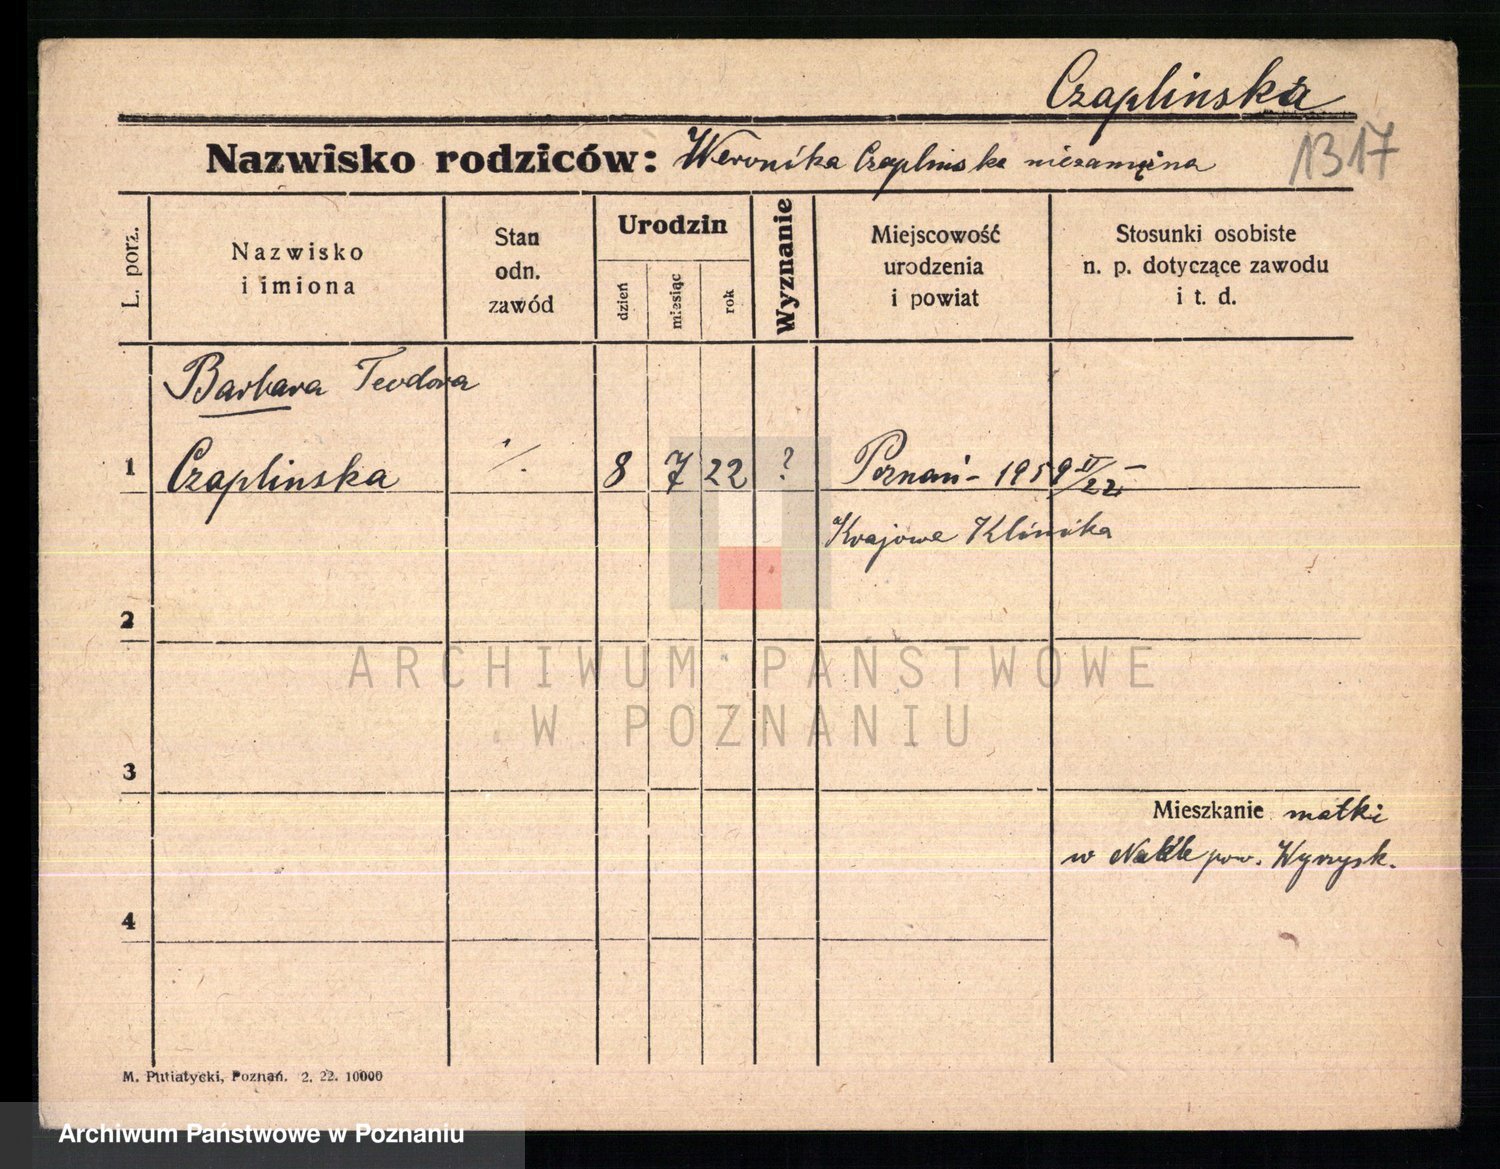 Czaplinska
Nazwisko rodziców: Weronika Czaplinska niezamężna
1317
L. porz.
Nazwisko
i imiona
Stan
odn.
zawód
Urodzin
dzień
miesiąc
rok
Wyznanie
Miejscowość
urodzenia
i powiat
Stosunki osobiste
n. p. dotyczące zawodu
i t. d.
Barbara Teodora
1 Czaplinska ./. 8 7 22 ? Poznań - 1959 II/22 -
Krajowa Klinika
2
ARCHIWUM PAŃSTWOWE
W POZNANIU
3
Mieszkanie matki
w Nakle pow. Wyrzysk.
4
M. Putiatycki, Poznań. 2. 22. 10000
Archiwum Państwowe w Poznaniu